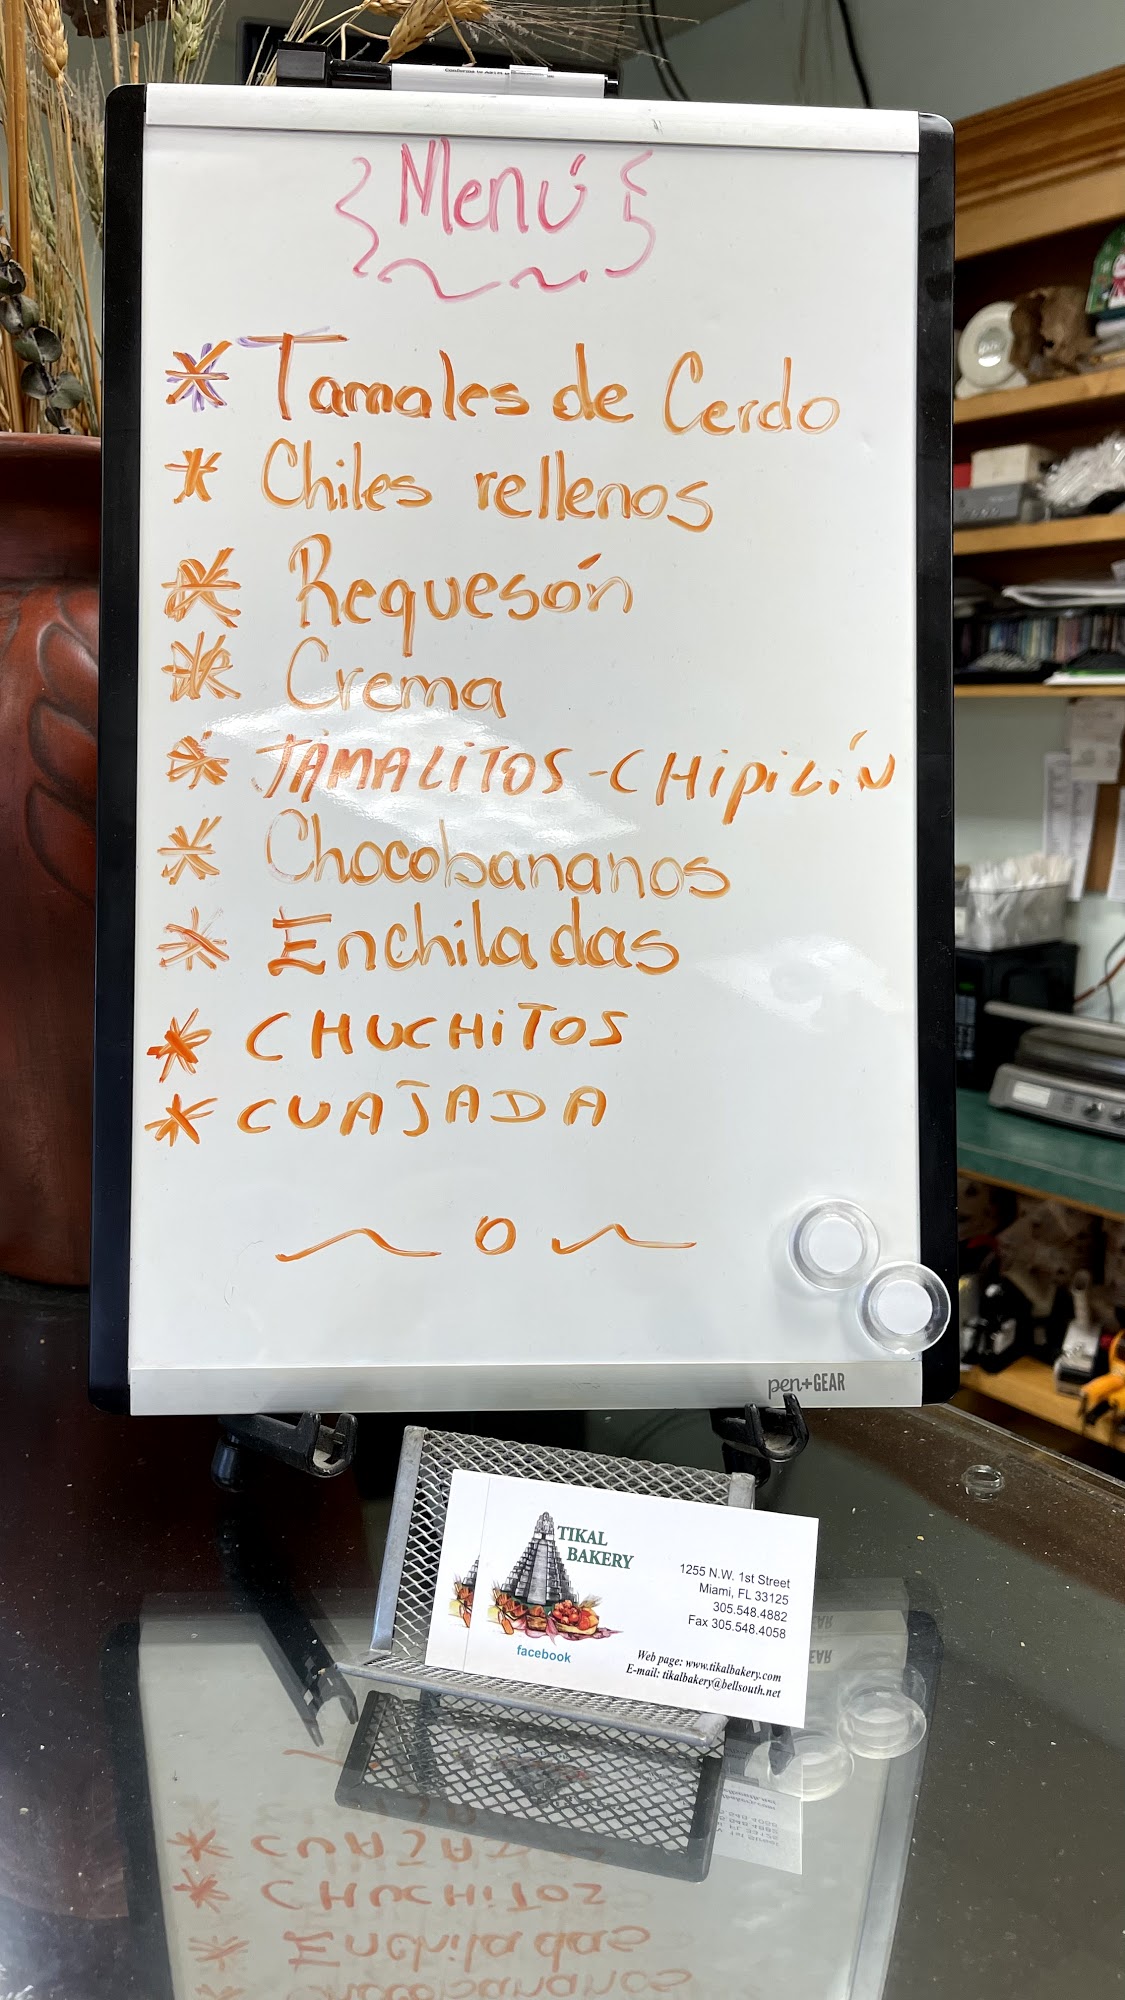 Menú
* Tamales de Cerdo
* Chiles rellenos
* Requesón
* Crema
* TAMALITOS - CHipiLíN
* Chocobananos
* Enchiladas
* CHUCHiTOS
* CUAJADA
pen+GEAR
TIKAL
BAKERY
facebook
1255 N.W. 1st Street
Miami, FL 33125
305.548.4882
Fax 305.548.4058
Web page: www.tikalbakery.com
E-mail: tikalbakery@bellsouth.net